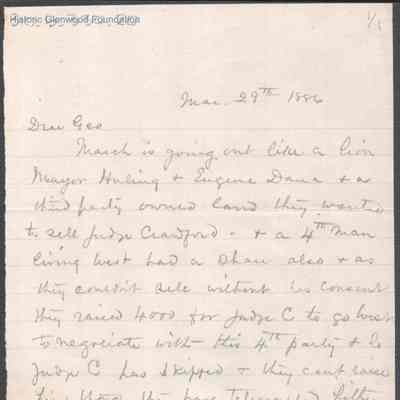 Historic Glenwood Foundation
1/3
Mar. 29th 1886
Dear Geo
March is going out like a lion
Mayor Huling & Eugene Dana & a
third party owned land they wanted
to sell Judge Crawford - & a 4th man
living West had a share also & as
they couldn't sell without his consent
they raised 4000 for Judge C to go West
to negotiate with this 4th party & lo
Judge C has skipped & they cant trace
him tho they have telegraphed hither